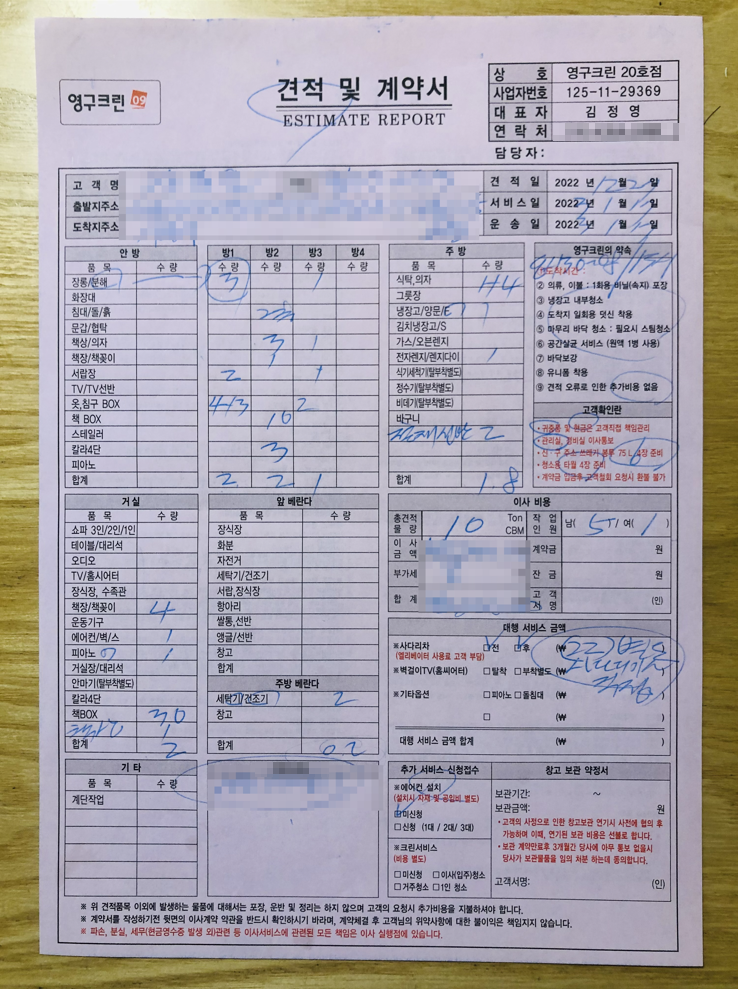 영구크린 09
견적 및 계약서
ESTIMATE REPORT
상 호 영구크린 20호점
사업자번호 125-11-29369
대 표 자 김 정 영
연 락 처
담당자 :
고 객 명
출발지주소
도착지주소
견 적 일 2022 년 12월 일
서비스일 2022 년 월 일
운 송 일 2022 년 월 일
안 방 방1 방2 방3 방4
품 목 수 량 수 량 수 량 수 량 수 량
장롱/분해 3 1
화장대
침대/돌/흙 2
문갑/협탁
책상/의자 3 1
책장/책꽂이 1
서랍장 2 1
TV/TV선반
옷,침구 BOX 4 3 2
책 BOX 10
스테일러
칼라4단 3
피아노
합계 2. 2. 1
주 방
품 목 수 량
식탁,의자 1+4
그릇장
냉장고/양문/E 1
김치냉장고/S
가스/오븐렌지
전자렌지/렌지다이 1
식기세척기(탈부착별도)
정수기(탈부착별도)
비데기(탈부착별도)
바구니
2
합계 1.8
영구크린의 약속
② 의류, 이불 : 1회용 비닐(속지) 포장
③ 냉장고 내부청소
④ 도착지 일회용 덧신 착용
⑤ 마무리 바닥 청소 : 필요시 스팀청소
⑥ 공간살균 서비스 (원액 1병 사용)
⑦ 바닥보강
⑧ 유니폼 착용
⑨ 견적 오류로 인한 추가비용 없음
고객확인란
• 귀중품 및 현금은 고객직접 책임관리
• 관리실, 경비실 이사통보
• 신 · 구 주소 쓰레기 봉투 75 L 4장 준비
• 청소용 타월 4장 준비
• 계약금 입금후 고객철회 요청시 환불 불가
거 실
품 목 수 량
쇼파 3인/2인/1인
테이블/대리석
오디오
TV/홈시어터
장식장, 수족관
책장/책꽂이 4
운동기구
에어컨/벽/스 1
피아노 1
거실장/대리석
안마기(탈부착별도)
칼라4단
책BOX 30
합계 2
앞 베란다
품 목 수 량
장식장
화분
자전거
세탁기/건조기
서랍,장식장
항아리
쌀통,선반
앵글/선반
창고
합계
주방 베란다
세탁기/건조기 2
창고
합계 0.2
이사 비용
총견적물량 10 Ton CBM 작업인원 남( 5 )/ 여( 1 )
이 사 금 액 계약금 원
부가세 잔 금 원
합 계 고 객 서 명 (인)
대행 서비스 금액
※사다리차 □전 □후 (₩
(엘리베이터 사용료 고객 부담)
※벽걸이TV(홈씨어터) □탈착 □부착별도 (₩ )
※기타옵션 □피아노 □돌침대 (₩ )
□ (₩ )
대행 서비스 금액 합계 (₩ )
기 타
품 목 수 량
계단작업
추가 서비스 신청접수
※에어컨 설치
(설치시 자재 및 공임비 별도)
□미신청
□신청 (1대 / 2대/ 3대)
※크린서비스
(비용 별도)
□미신청 □이사(입주)청소
□거주청소 □1인 청소
창고 보관 약정서
보관기간: ~
보관금액: 원
• 고객의 사정으로 인한 창고보관 연기시 사전에 협의 후
가능하며 이때, 연기된 보관 비용은 선불로 합니다.
• 보관 계약만료후 3개월간 당사에 아무 통보 없을시
당사가 보관물품을 임의 처분 하는데 동의합니다.
고객서명: (인)
※ 위 견적품목 이외에 발생하는 물품에 대해서는 포장, 운반 및 정리는 하지 않으며 고객의 요청시 추가비용을 지불하셔야 합니다.
※ 계약서를 작성하기전 뒷면의 이사계약 약관을 반드시 확인하시기 바라며, 계약체결 후 고객님의 위약사항에 대한 불이익은 책임지지 않습니다.
※ 파손, 분실, 세무(현금영수증 발생 외)관련 등 이사서비스에 관련된 모든 책임은 이사 실행점에 있습니다.